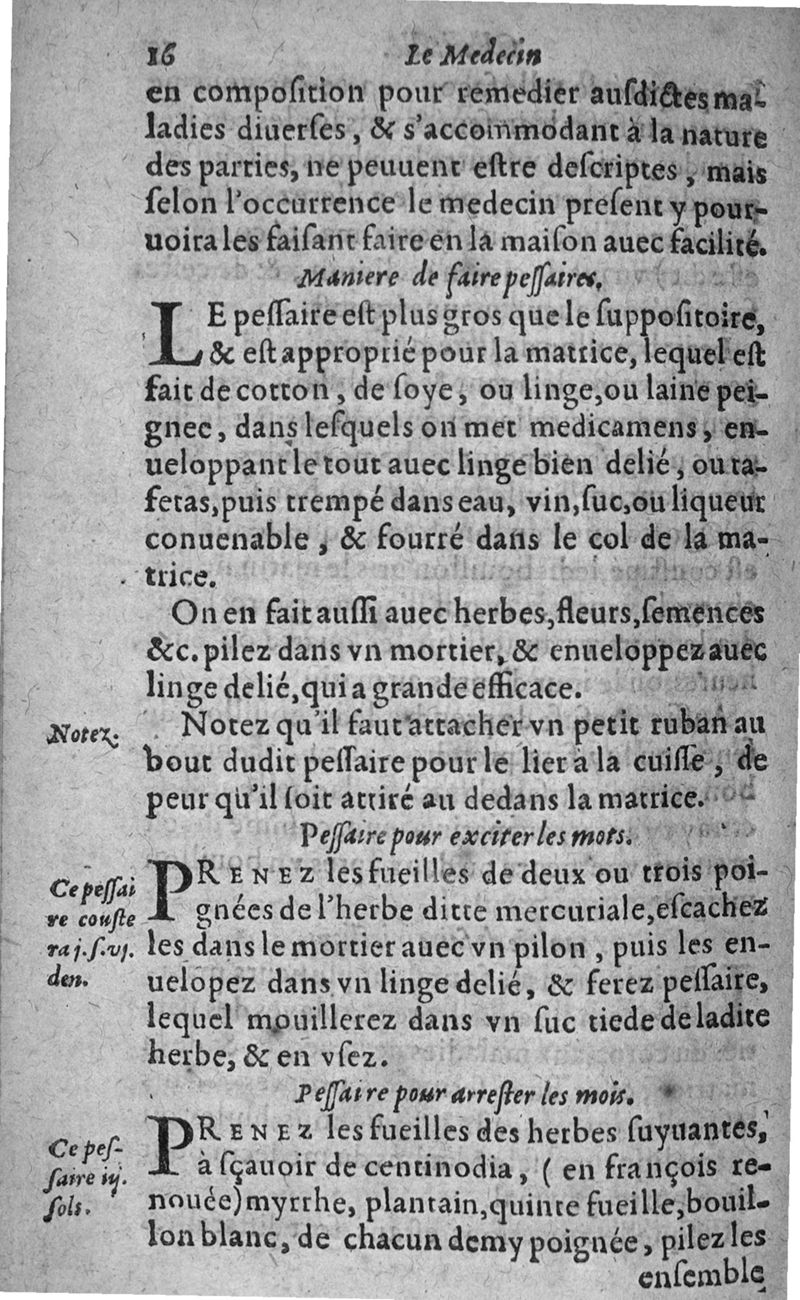 16 Le Medecin
en compoſition pour remedier auſdictes ma-
ladies diuerſes, & s'accommodant à la nature
des parties, ne peuuent eſtre deſcriptes, mais
ſelon l'occurrence le medecin preſent y pour-
uoira les faiſant faire en la maiſon auec facilité.
Maniere de faire peſſaires.
LE peſſaire eſt plus gros que le ſuppoſitoire,
& eſt approprié pour la matrice, lequel eſt
fait de cotton, de ſoye, ou linge, ou laine pei-
gnee, dans leſquels on met medicamens, en-
ueloppant le tout auec linge bien delié, ou ta-
fetas, puis trempé dans eau, vin, ſuc, ou liqueur
conuenable, & fourré dans le col de la ma-
trice.
On en fait auſſi auec herbes, fleurs, ſemences
&c. pilez dans vn mortier, & enueloppez auec
linge delié, qui a grande efficace.
Notez.
Notez qu'il faut attacher vn petit ruban au
bout dudit peſſaire pour le lier à la cuiſſe, de
peur qu'il ſoit attiré au dedans la matrice.
Peſſaire pour exciter les mots.
Ce peſſai
re couſte
ra j.ſ.vj.
den.
PRENEZ les fueilles de deux ou trois poi-
gnées de l'herbe ditte mercuriale, eſcachez
les dans le mortier auec vn pilon, puis les en-
uelopez dans vn linge delié, & ferez peſſaire,
lequel mouillerez dans vn ſuc tiede de ladite
herbe, & en vſez.
Peſſaire pour arreſter les mois.
Ce peſ-
ſaire iij.
ſols.
PRENEZ les fueilles des herbes ſuyuantes,
à ſçauoir de centinodia, ( en françois re-
nouée) myrrhe, plantain, quinte fueille, bouil-
lon blanc, de chacun demy poignée, pilez les
enſemble